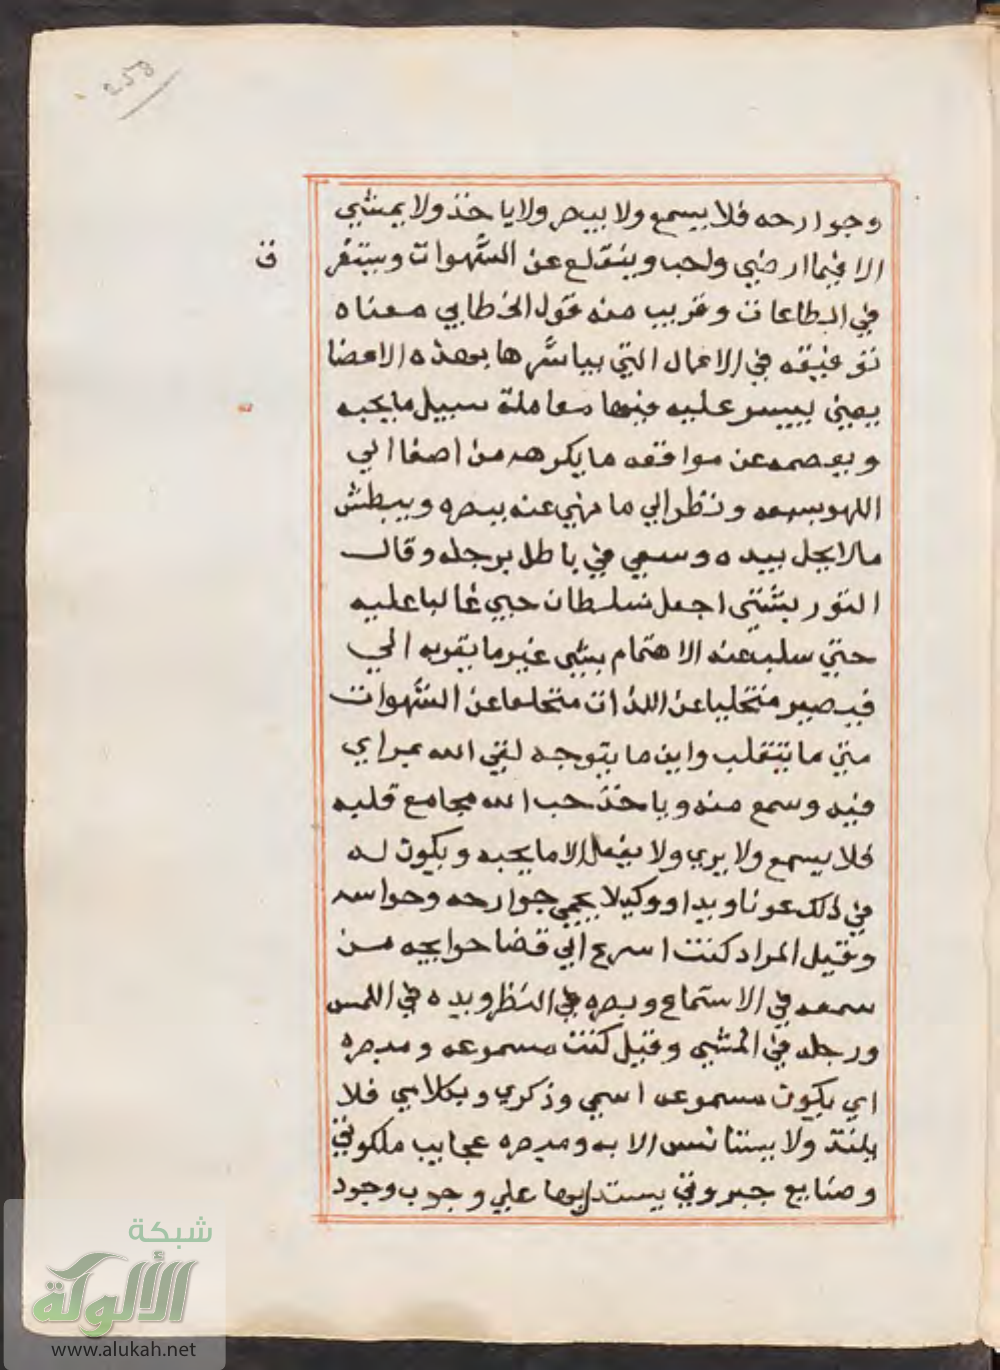 258
وجوارحه فلا يسمع ولا يبصر ولا ياخذ ولا يمشي
الا فيما ارضي ولحب وينقلع عن الشهوات ويستغر
ق
في الطاعات وقريب منه قول الخطابي معناه
توفيقه في الاعمال التي يباشرها بهذه الاعضا
يعني ييسر عليه فيها معاملة سبيل ما يحبه
ويعصمه عن موافقه ما يكرهه من اصغا الي
اللهو بسمعه ونظر الي ما نهي عنه ببصره ويبطش
مالا يحل بيده وسعي في باطل برجله وقال
التوربشتي اجعل سلطان حبي غالبا عليه
حتي سلب عنه الاهتمام بشي غير ما يقربه الي
فيصير متخليا عن اللذات متخلعا عن الشهوات
متي ما يتقلب واين ما يتوجه لقي الله بمراي
فيه وسمع منه وياخذ حب الله مجامع قلبه
فلا يسمع ولا يري ولا يفعل الا ما يحبه ويكون له
في ذلك عونا ويدا ووكيلا يحمي جوارحه وحواسه
وقيل المراد كنت اسرع الي قضا حوايجه من
سمعه في الاستماع وبصره في النظر ويده في اللمس
ورجله في المشي وقيل كنت مسموعه ومبصره
اي يكون مسموعه اسمي وذكري وبكلامي فلا
يلتذ ولا يستانس الا به ومبصره عجايب ملكوتي
وصنايع جبروتي يستدل بها علي وجوب وجود
شبكة
الألوكة
www.alukah.net